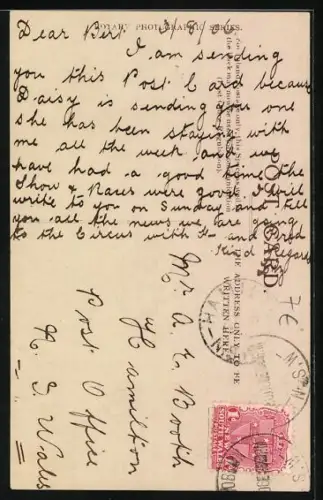 ROTARY PHOTOGRAPHIC SERIES.
Dear Bert
I am sending
you this Post Card because
Daisy is sending you one
she has been staying with
me all the week and we
have had a good time the
Show & Races were good I will
write to you on Sunday and tell
you all the news we are going
to the Circus with and
Kind Regards
POST CARD
THE ADDRESS ONLY TO BE
WRITTEN HERE
Mr A. E. Booth
Hamilton
Post Office
N. S Wales
7E
HAM
N.S.W
NEW
SOUTH WALES